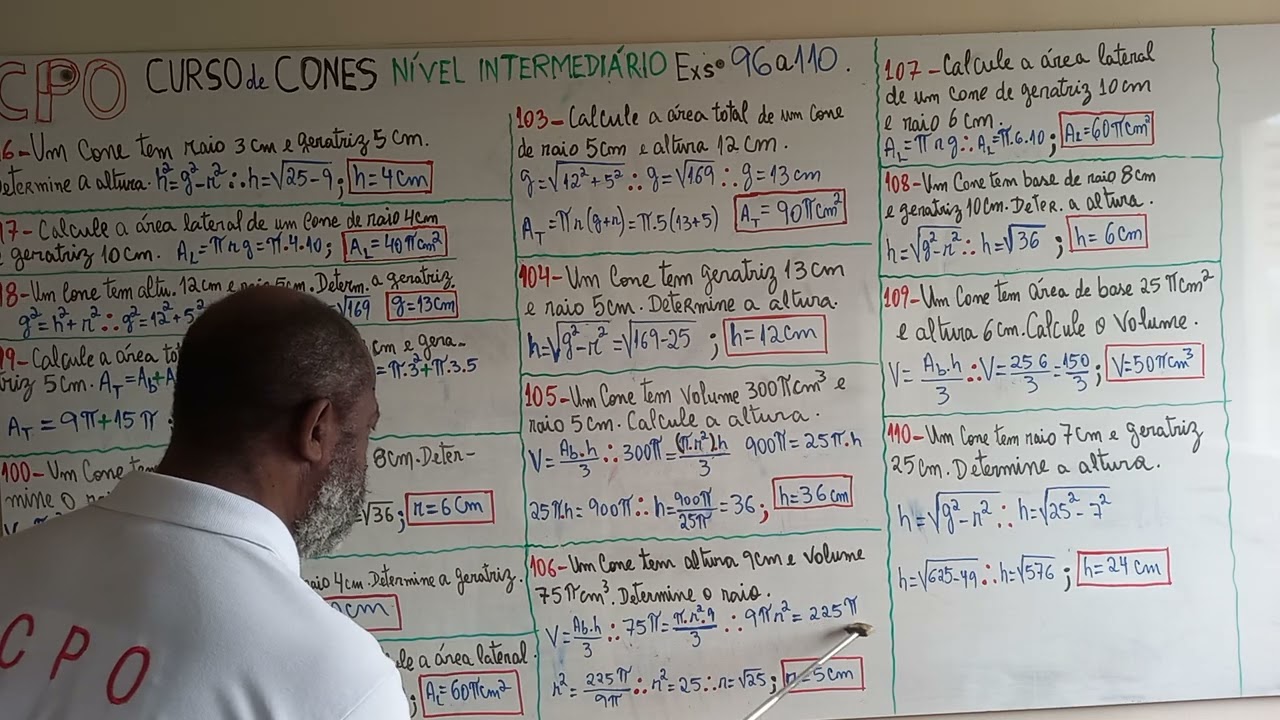 CPO CURSO de CONES NÍVEL INTERMEDIÁRIO Exsº 96 a 110.
6-Um Cone tem raio 3 cm e geratriz 5 cm.
Determine a altura. h²=g²-r² ∴ h=√25-9; h=4cm
97- Calcule a área lateral de um cone de raio 4cm
e geratriz 10 cm. AL=πrg=π.4.10; AL=40πcm²
98-Um Cone tem altu. 12cm e raio 5cm. Determ. a geratriz.
g²=h²+r² ∴ g²=12²+5² √169 g=13cm
99- Calcule a área cm e gera-
triz 5cm. AT=Ab+A =π.3²+π.3.5
AT=9π+15π
100- Um Cone 8cm. Deter-
mine o =√36; r=6cm
raio 4cm. Determine a geratriz.
cm
a área lateral.
; AL=60πcm²
103-Calcule a área total de um cone
de raio 5cm e altura 12 cm.
g=√12²+5² ∴ g=√169 ∴ g=13cm
AT=πr(g+r)=π.5(13+5) AT=90πcm²
104-Um Cone tem geratriz 13cm
e raio 5cm. Determine a altura.
h=√g²-r²=√169-25 ; h=12cm
105-Um Cone tem Volume 300πcm³ e
raio 5cm. Calcule a altura.
V=Ab.h/3 ∴ 300π=(π.r²).h/3 900π=25π.h
25π.h=900π ∴ h=900π/25π=36; h=36cm
106-Um Cone tem altura 9cm e Volume
75πcm³. Determine o raio.
V=Ab.h/3 ∴ 75π=π.r².9/3 ∴ 9πr²=225π
r²=225π/9π ∴ r²=25 ∴ r=√25; r=5cm
107-Calcule a área lateral
de um cone de geratriz 10cm
e raio 6cm.
AL=πrg ∴ AL=π.6.10; AL=60πcm²
108-Um Cone tem base de raio 8cm
e geratriz 10cm. Deter. a altura.
h=√g²-r² ∴ h=√36 ; h=6cm
109-Um Cone tem área de base 25πcm²
e altura 6cm. Calcule o Volume.
V=Ab.h/3 ∴ V=25 6/3=150/3; V=50πcm³
110-Um Cone tem raio 7cm e geratriz
25cm. Determine a altura.
h=√g²-r² ∴ h=√25²-7²
h=√625-49 ∴ h=√576 ; h=24cm
CPO